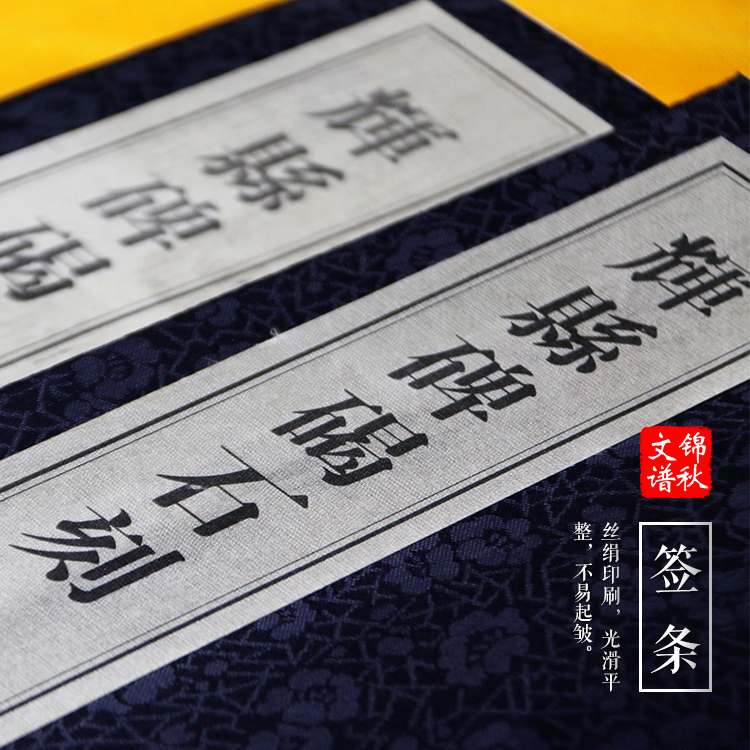 輝縣碑碣
輝縣碑碣石刻
錦秋
文谱
签条
丝绢印刷，光滑平
整，不易起皱。